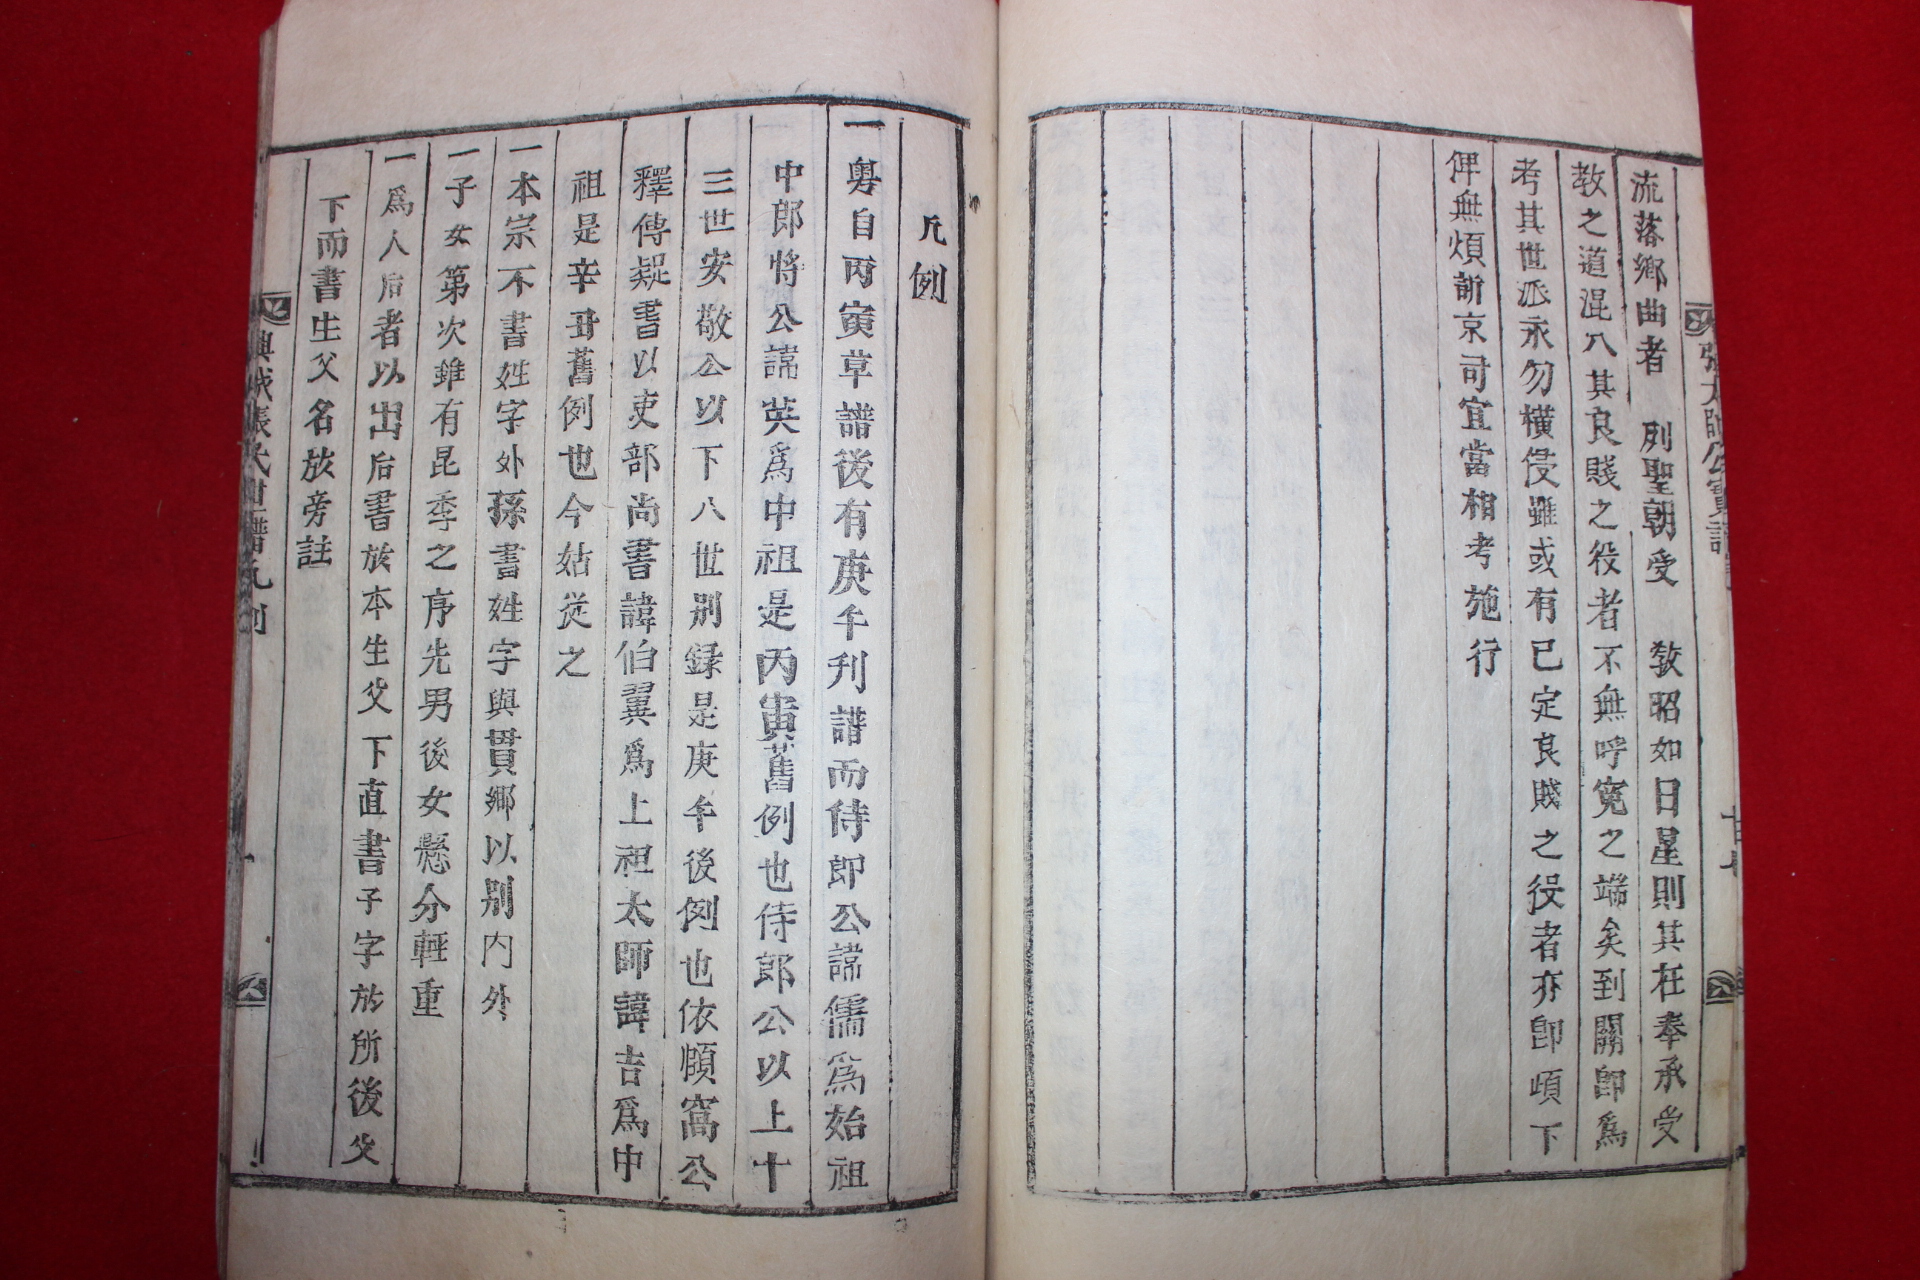 張太師公實譜
廿七
流落鄉曲者　列聖朝受　敎昭如日星則其在奉承受
敎之道混入其良賤之役者不無呼寃之端矣到關卽爲
考其世派永勿橫侵雖或有已定良賤之役者亦卽頉下
俾無煩訴京司宜當相考施行
凡例
一粤自丙寅草譜後有庚午刋譜而侍郎公諱儒爲始祖
中郎將公諱英爲中祖是丙寅舊例也侍郎公以上十
三世安敬公以下八世别錄是庚午後例也依頤窩公
釋傳疑書以吏部尚書諱伯翼爲上祖太師諱吉爲中
祖是辛丑舊例也今姑從之
一本宗不書姓字外孫書姓字與貫鄉以别内外
一子女第次雖有昆季之序先男後女懸分輕重
一爲人后者以出后書於本生父下直書子字於所後父
下而書生父名於旁註
興城張氏世譜凡例
一